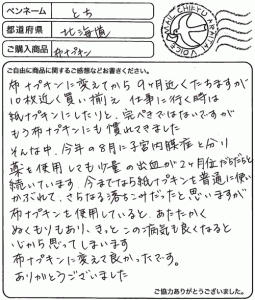 ペンネーム とち
都道府県 北海道
ご購入商品 布ナプキン
MAIL CHIEKU ARAITAI VOICE
ご自由に商品に関するご感想などお書きください。
布ナプキンに変えてから 9ヶ月近くたちますが
10枚近く買い揃え 仕事に行く時は
紙ナプキンにしたりと、完ぺきではないですが
もう布ナプキンにも慣れてきました
そんな中、今年の8月に子宮内膜症と分り
薬を使用しても少量の出血が2ヶ月位だらだらと
続いています。今までなら紙ナプキンを普通に使い
かぶれて、さらなる落ちこみだったと思いますが
布ナプキンを使用していると、あたたかく
ぬくもりもあり、きっとこの病気も良くなると
心から思ってしまいます
布ナプキンに変えて良かったです。
ありがとうございました
ご協力ありがとうございました。